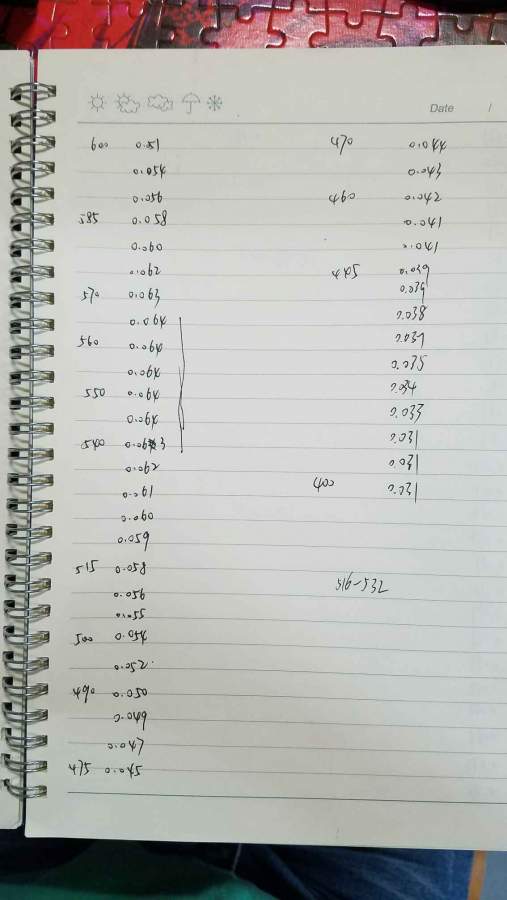 Date /
600 0.51
0.054
0.056
585 0.058
0.060
0.062
570 0.063
0.064
560 0.064
0.064
550 0.064
0.064
540
0.062
0.061
0.060
0.059
515 0.058
0.056
0.055
500 0.054
0.052
490 0.050
0.049
0.047
475 0.045
470 0.044
0.043
460 0.042
0.041
0.041
445 0.039
0.039
0.038
0.037
0.035
0.034
0.033
0.031
0.031
400 0.031
516-532